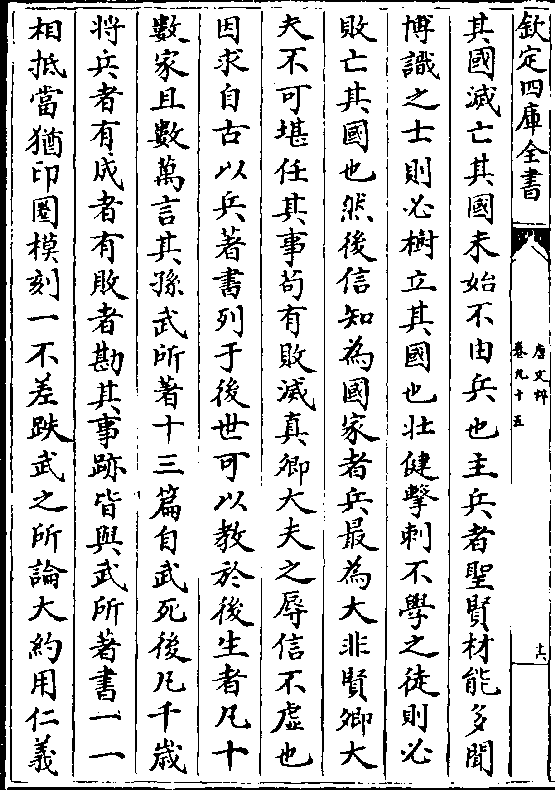 欽定四庫全書
唐文粹
卷九十五
十六
其國滅亡其國未始不由兵也主兵者聖賢材能多聞
博識之士則必樹立其國也壯健擊刺不學之徒則必
敗亡其國也然後信知為國家者兵最為大非賢卿大
夫不可堪任其事苟有敗滅真卿大夫之辱信不虛也
因求自古以兵著書列于後世可以教於後生者凡十
數家且數萬言其孫武所著十三篇自武死後凡千歲
將兵者有成者有敗者勘其事跡皆與武所著書一一
相抵當猶印圏模刻一不差跌武之所論大約用仁義